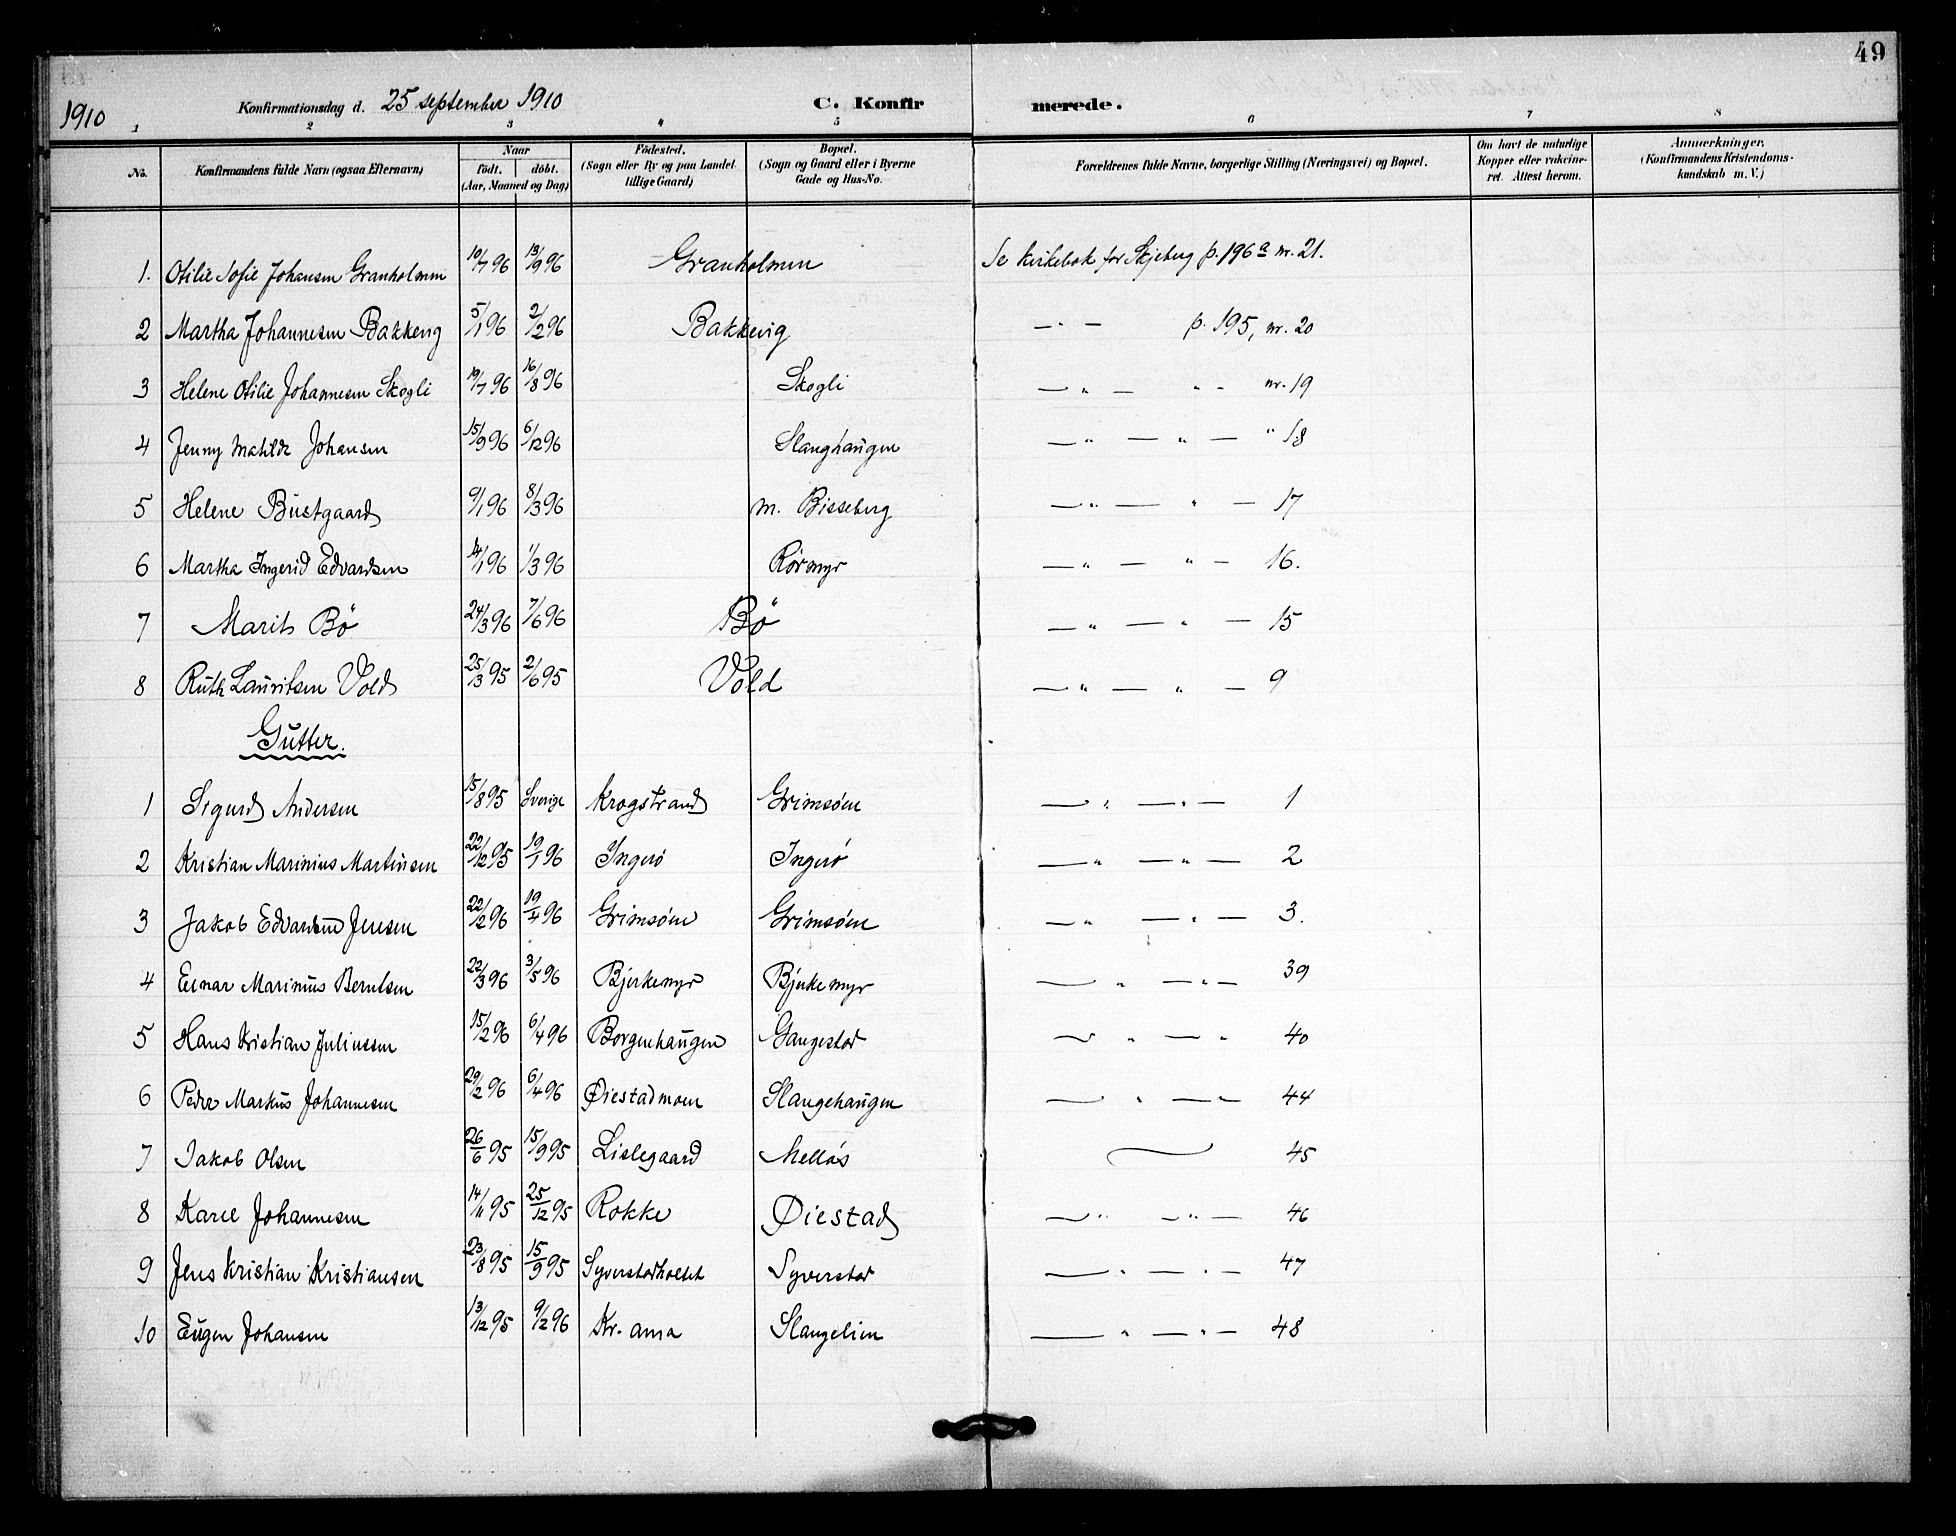 49
1910
Konfirmationsdag d. 25 september 1910
C. Konfirmerede.
1 2 3 4 5 6 7 8
No.
Konfirmandens fulde Navn (ogsaa Efternavn)
Naar
födt. döbt.
(Aar, Maaned og Dag)
Födested.
(Sogn eller By og paa Landet tillige Gaard)
Bopæl.
(Sogn og Gaard eller i Byerne Gade og Hus-No.
Forældrenes fulde Navne, borgerlige Stilling (Næringsvei) og Bopæl.
Om havt de naturlige Kopper eller vakcineret. Attest herom.
Anmærkninger.
(Konfirmandens Kristendomskundskab m. V.)
1. Otilie Sofie Johansen Granholmen 19/7 96 13/9 96 Granholmen Se kirkebok for Skjeberg p. 196 a nr. 21.
2 Martha Johannesen Bakkeng 5/1 96 2/2 96 Bakkevig — " — p. 195, nr. 20
3 Helene Otilie Johannesen Skogli 19/7 96 16/8 96 Skogli — " — " - nr. 19
4 Jenny Matilde Johansen 15/9 96 6/12 96 Slanghaugen — " — " — " 18
5 Helene Bustgaard 9/1 96 8/3 96 m. Bisseberg — " — " — 17
6 Martha Ingerid Edvardsen 14/1 96 1/3 96 Rörmyr — " — " — 16.
7 Marit Bö 24/3 96 7/6 96 Bö — " — " — 15
8 Ruth Lauritsen Vold 25/3 95 2/6 95 Vold — " — " — 9
Gutter.
1 Sigurd Andersen 15/8 95 Sverige Krogstrand Grimsöen — " — " — 1
2 Kristian Marinius Martinsen 22/12 95 19/1 96 Ingerö Ingerö — " — " — 2
3 Jakob Edvardsen Jensen 22/12 96 19/4 96 Grimsöen Grimsöen — " — " — 3.
4 Einar Marinius Berntsen 22/3 96 3/5 96 Bjerkemyr Bjerkemyr — " — " — 39
5 Hans Kristian Juliussen 15/2 96 6/4 96 Borgenhaugen Gangestad — " — " 40
6 Peder Markus Johannesen 29/2 96 6/4 96 Øiestadmoen Slangehaugen — " — " — 44
7 Jakob Olsen 26/6 95 15/9 95 Lislegaard Mellös — 45
8 Karel Johannesen 14/11 95 25/12 95 Rokke Øiestad — " — " — 46
9 Jens Kristian Kristiansen 23/8 95 15/9 95 Syverstadholtet Syverstad — " — " — 47
10 Eugen Johansen 13/12 95 9/2 96 Kr. ania Slangelien — " — " — 48